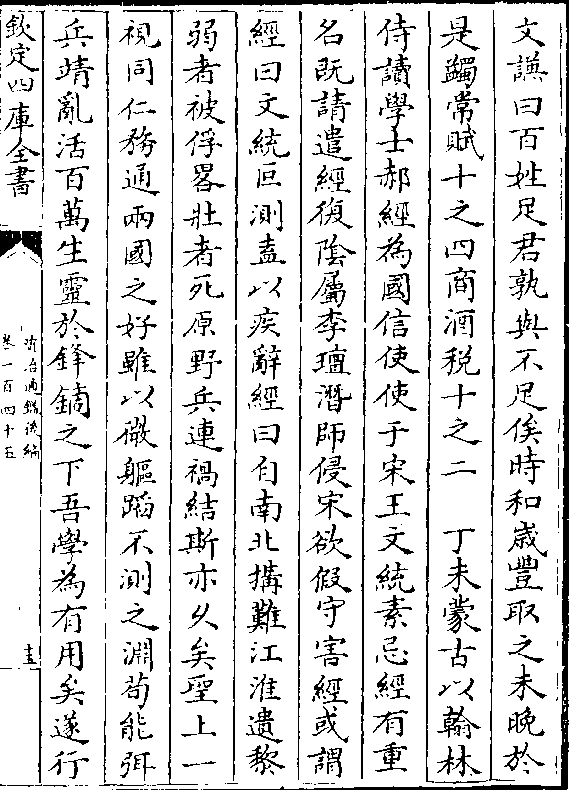 文謙曰百姓足君孰與不足俟時和歲豐取之未晚於
是蠲常賦十之四商酒税十之二　丁未蒙古以翰林
侍讀學士郝經為國信使使于宋王文統素忌經有重
名既請遣經復陰屬李璮潛師侵宋欲假守害經或謂
經曰文統叵測盍以疾辭經曰自南北搆難江淮遺黎
弱者被俘畧壯者死原野兵連禍結斯亦乆矣聖上一
視同仁務通兩國之好雖以微軀蹈不測之淵苟能弭
兵靖亂活百萬生靈於鋒鏑之下吾學為有用矣遂行
欽定四庫全書
資治通鑑後編
卷一百四十五